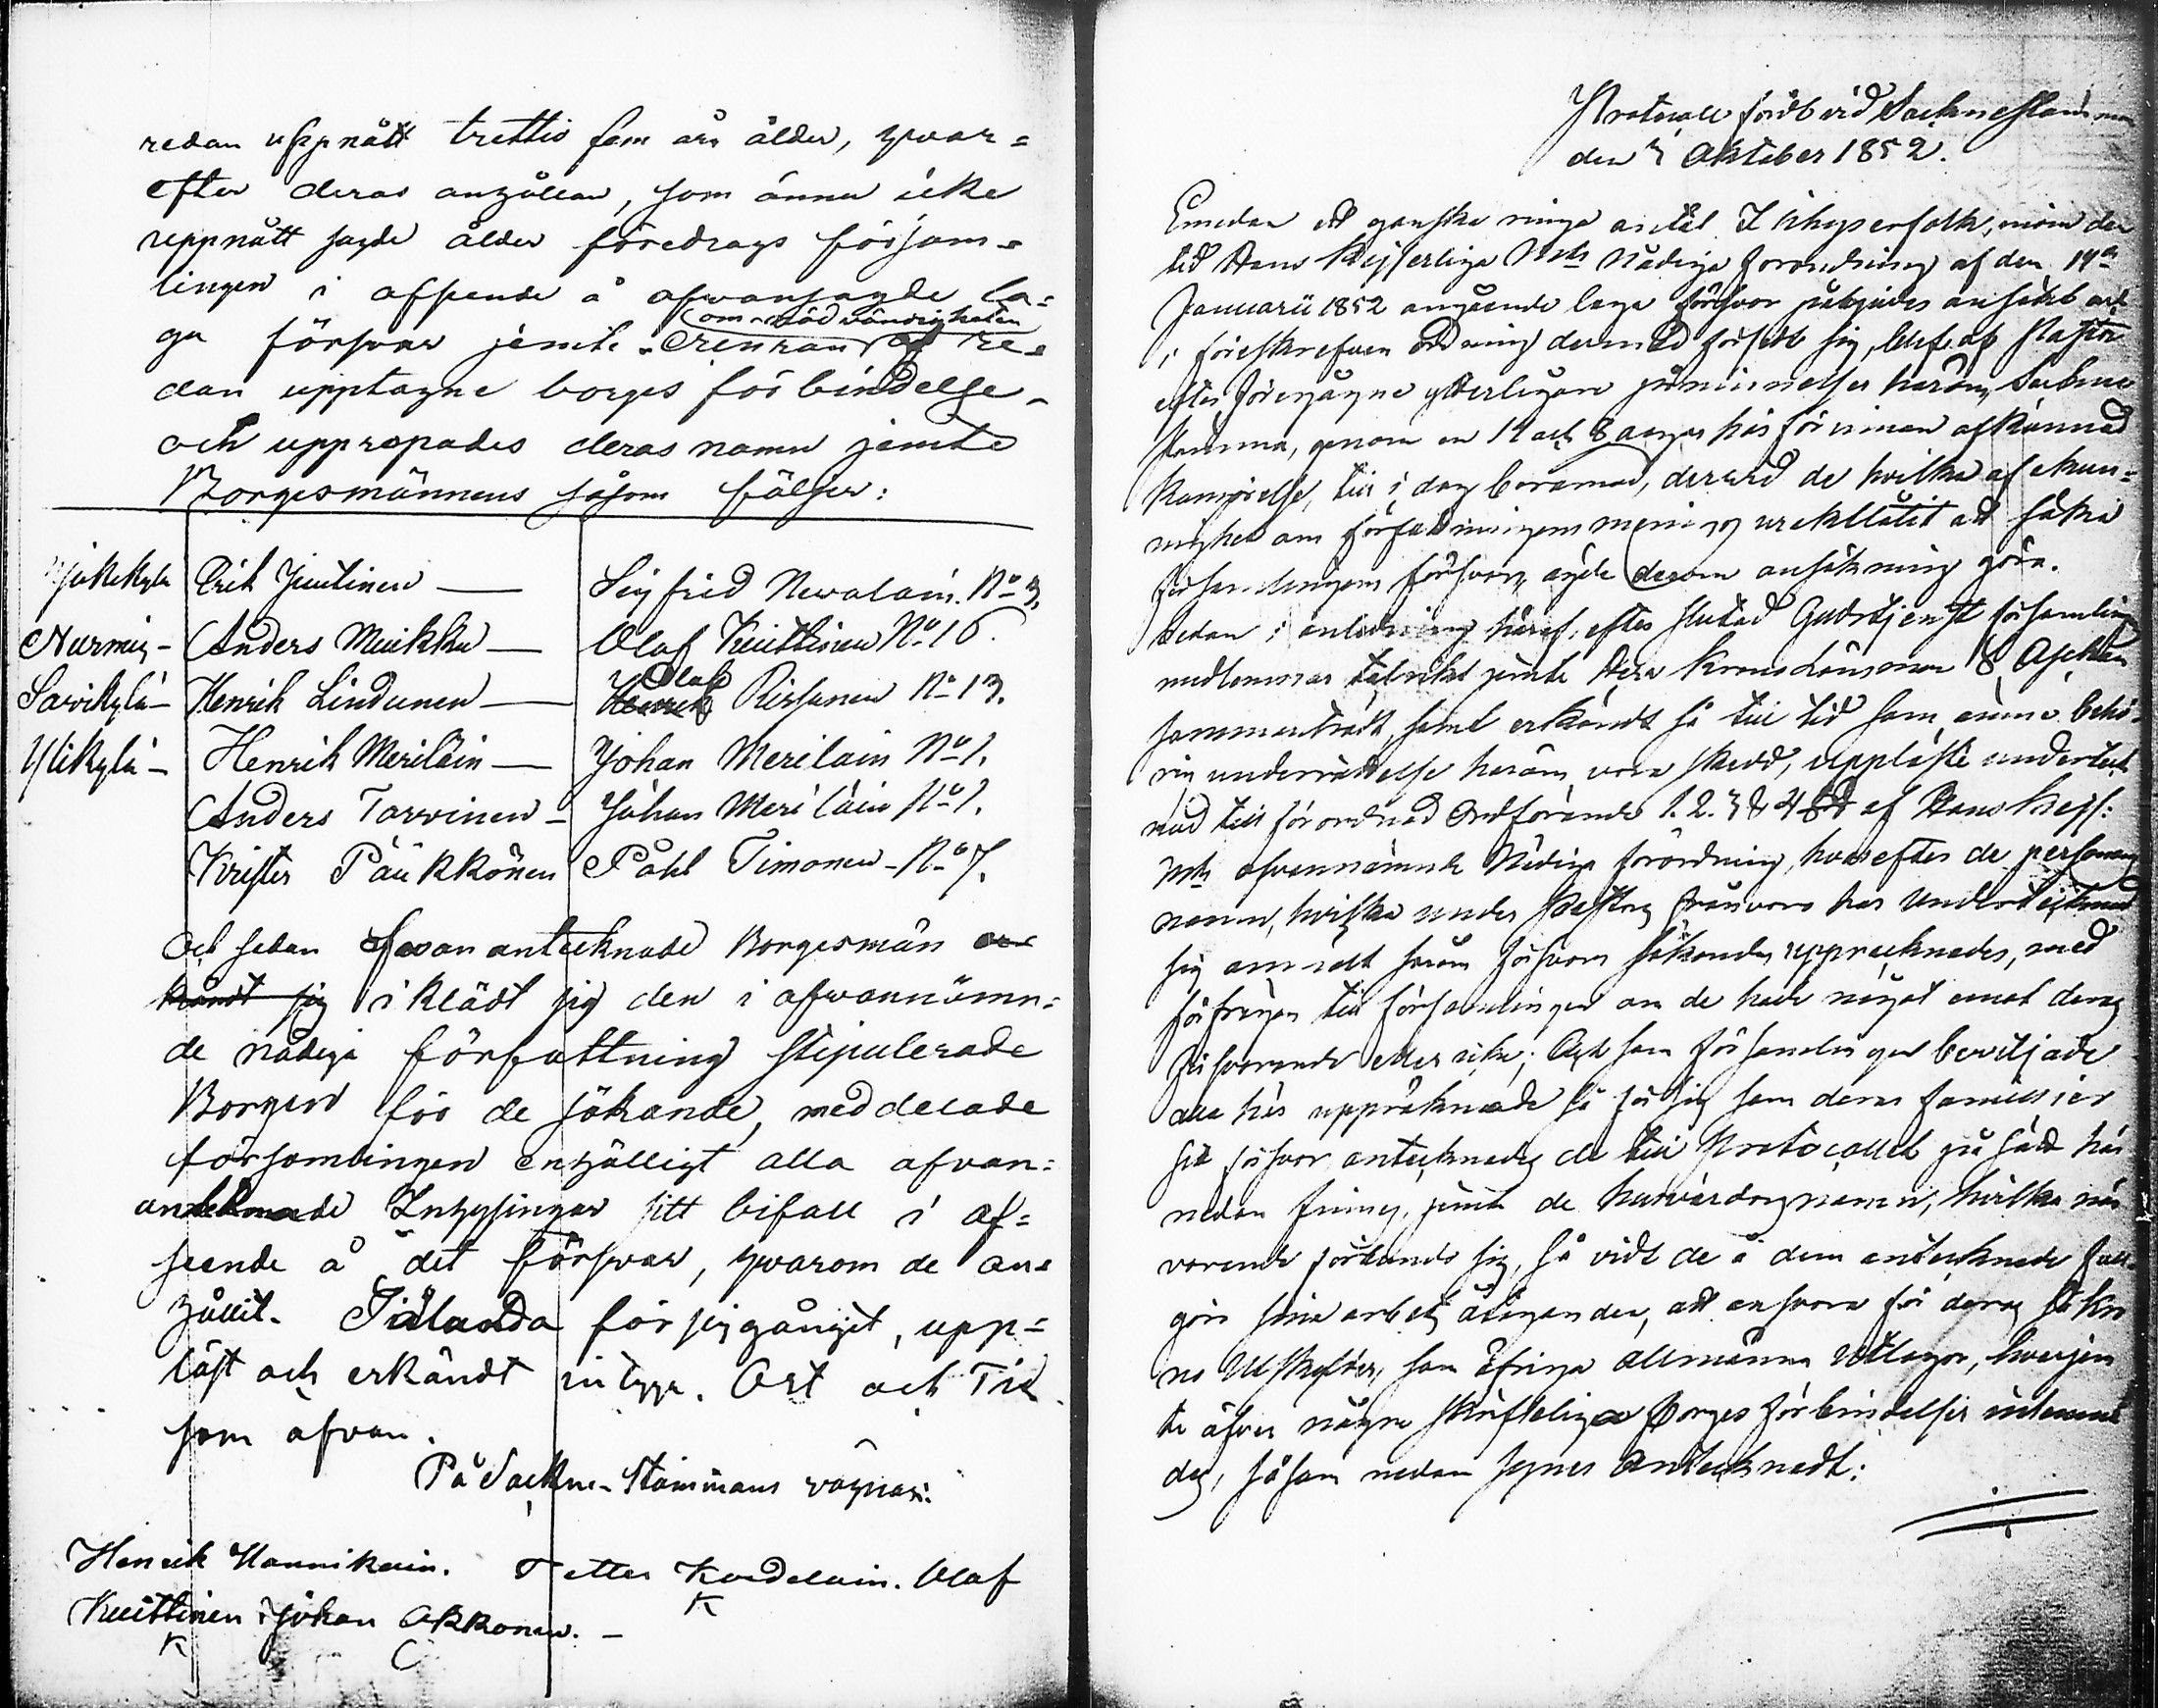 redan uppnått trettio fem års ålder, hvar=
efter deras anhållan, som ännu icke
uppnått sagde ålder föredrogs försam=
lingen i afseende å ofvansagde la=
ga försvar jemte Erinran om nödvändigheten af re=
dan upptagne borges förbindelse
och uppropades deras namn jemte
Borgesmännens såsom följer:
Jokikylä Erik Juutinen — Sigfred Newalain. No 3.
Nurmes - Anders Muikku — Olof Kuittinen No 16.
Savikylä - Henrik Lindunen — Henrik Olof Rissanen No 13.
Ylikylä - Henrik Meriläin — Johan Meriläin No 1.
Anders Tarvinen - Johan Meriläin No 1.
Krister Päikkönen Påhl Timonen - No 7.
Och sedan ofvan antecknade Borgesmän er
kändt sig iklädt sig den i ofvannämn=
de nådiga författning stipulerade
Borgen för de sökande, meddelade
församlingen enhälligt alla ofvan=
antecknade Inhysingar sitt bifall i af=
seende å det försvar, hvarom de an=
hållit. Sålunda försiggånget, upp=
läst och erkändt intyga. Ort och Tid
som ofvan.
På Sockne-Stämmans vägnar:
Henrik Hannikain. Petter Kordelain. Olof
K
Kuittinen Johan Okkonen. -
K
Protocoll fördt vid Sockne Stämman
den 3 Oktober 1852.
Emedan ett ganska ringa antal Inhyserfolk, inom den
tid Hans Kejserliga Mts Nådiga Förordning af den 19de
Januarii 1852 angående laga försvar påbjudes
i föreskrefven ordning dermed försedt sig, blef af Pastor
efter föregångne ytterligare påminnelser härom, Sockne
Stämma, genom en 14 och 8 dagar här förinnan afkunnad
Kungörelse, till i dag beramad, dervid de hvilka af okun=
nighet om författningens mening uraktlåtit att söka
församlingens försvar, ägde derom ansökning göra.
Sedan i anledning häraf, efter slutad Gudstjenst församlings
medlemmar talrikt jemte Herr Kronolänsman
sammanträdt, samt erkändt så till tid som ämne behö=
rig underrättelse härom vara skedd, uppläste underteck
nad till förordnad Ordförande 1. 2. 3 & 4 §§ af Hans Kejs:
Mts ofvannämnde Nådiga förordning, hvarefter de personers
namn, hvilka under Pastors frånvaro hos Undertecknad
sig anmält såsom försvar sökande, uppräknades, med
förfrågan till församlingen om de hade något emot deras
försvarande eller icke; Och som församlingen beviljade
alla här uppräknade så för sig som deras familjer
sitt försvar antecknades de till Protocollet på sätt här
nedan finnes, jemte de husvärdars namn, hvilka när
varande förbundo sig, så vidt de å dem antecknade full
göra sina arbets åligganden, att ansvara för deras så Kro
no Utskylder, som öfriga allmänna Utlagor, hvarjem
te äfven några skriftliga Borges förbindelser inlemna
des, såsom nedan synes Antecknadt: